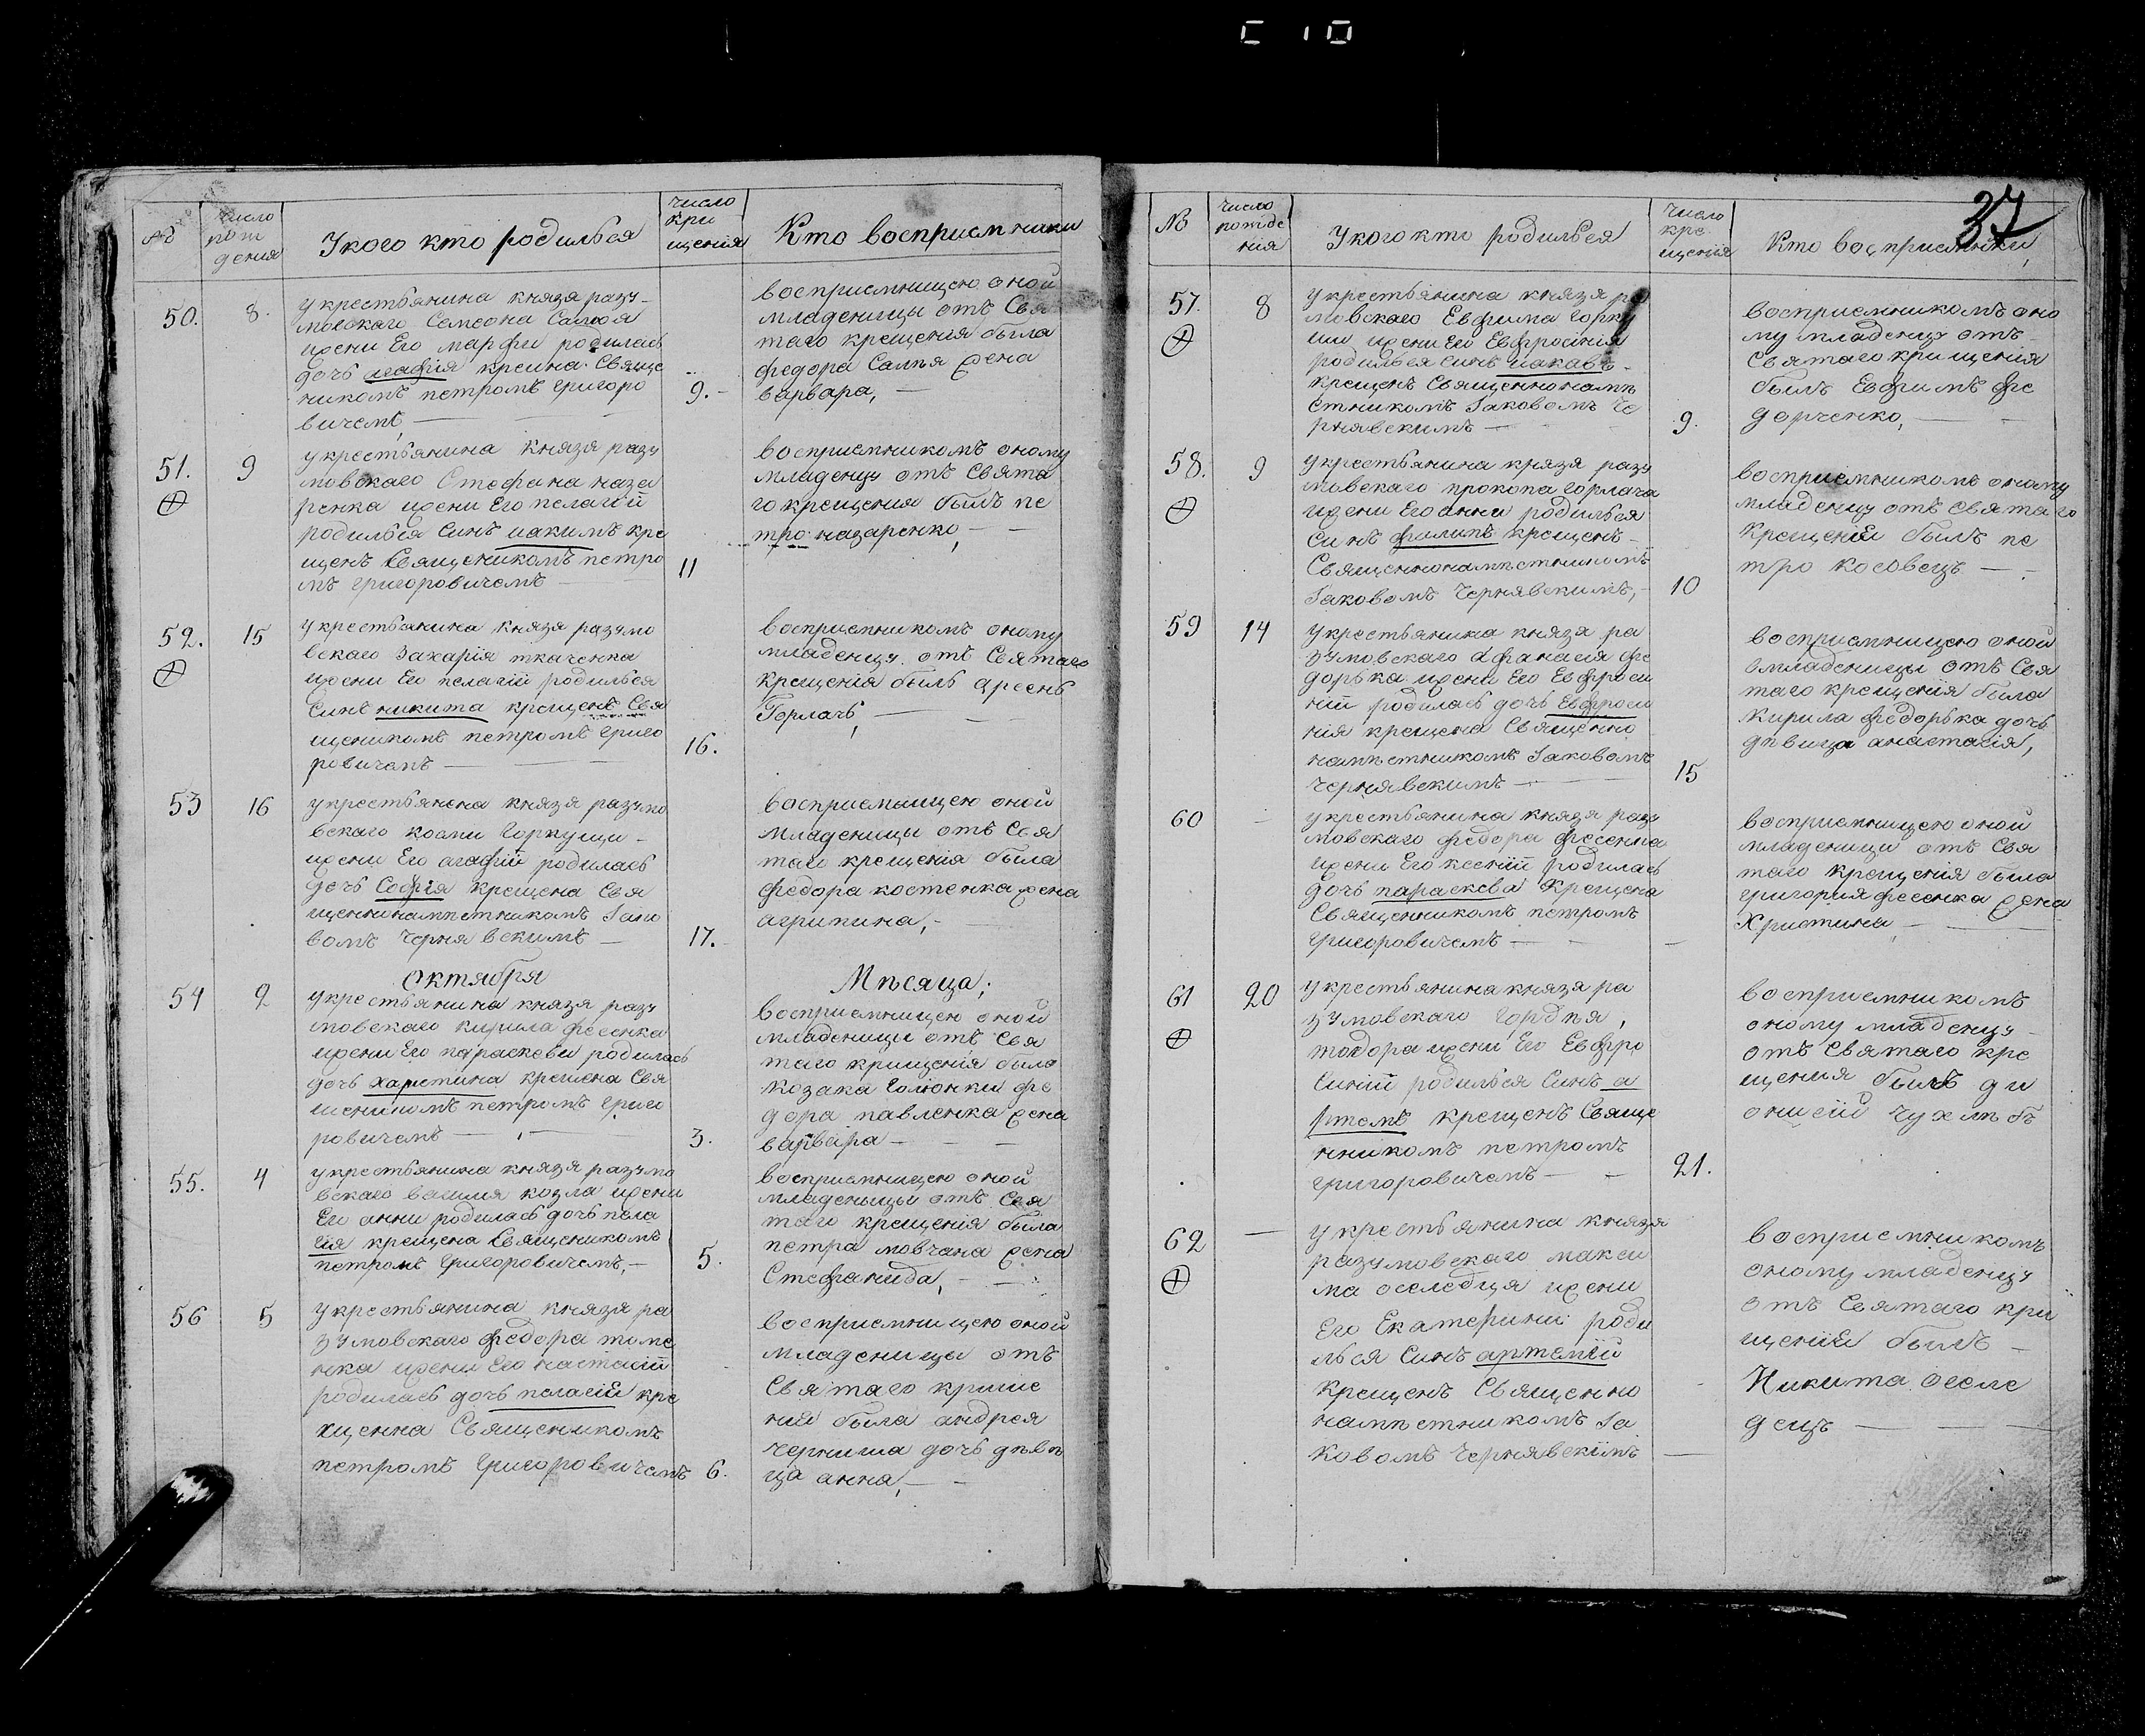 37
№
число рож дения
У кого кто родилься
число кри щения
Кто восприемники
50.
8.
у крестьянина князя разу-
мовского Самсона
жени Его марфи родилась
дочь агафія крещна Свяще
никомъ петромъ григоро
вичемъ,
9.
восприемницею оной
младеницы отъ Свя
таго крещения была
федора жена
варвара,
51.
9
у крестьянина князя разу
мовскаго Стефана наза
ренка жени Его пелагій
родилься Синъ иакимъ кре
щенъ Священикомъ петро
мъ григоровичемъ
11
восприемникомъ оному
младенцу отъ Свята
го крещения былъ пе
тро назаренко,
52.
15
у крестьянина князя разумо
вскаго Захарія ткаченка
жени Его пелагій родилься
Синъ никита крещенъ Свя
щеникомъ петромъ григо
ровичемъ
16.
восприемникомъ оному
младенцу отъ Святаго
крещенія былъ арсенъ
Горлачъ,
53
16
у крестьянена князя разумо
вскаго козми Горкуши
жени Его агафій родилась
дочь Софія крещена Свя
щеннонамѣстникомъ Іако
вомъ Чернявскимъ
17.
восприемницею оной
младеницы отъ Свя
таго крещенія была
федора костенка жена
агрипина,
Октября
Мѣсяца;
54
2
у крестьянина князя разу
мовскаго кирила фесенка
жени Его параскеви родилась
дочь харитина крещена Свя
щеникомъ петромъ григо
ровичемъ
3.
восприемницею оной
младеницы отъ Свя
таго крищенія была
козака Голюнки фе
дора павленка жена
варвара
55.
4
у крестьянина князя разумо
вскаго василя козла жени
Его анни родилась дочь пела
гія крещена Священикомъ
петромъ григоровичемъ,
5.
восприемницею оной
младеницы отъ Свя
таго крещенія была
петра мовчана жена
Стефанида,
56
5
у крестьянина князя ра
зумовскаго федора томе
нка жени Его настасій
родилась дочь пелагій кре
щенна Священикомъ
петромъ григоровичемъ
6.
восприемницею оной
младеницы отъ
Святаго крище
ния была андрея
черниша дочь дѣви
ца анна,
№
число рожде нія
У кого кто родилься
число кре щенія
Кто восприемники,
57.
8
у крестьянина князя ра
мовскаго Евфима Горку
ши жени Его Евфросинія
родилься Синъ иаковъ
крещенъ Священнонамѣ
стникомъ Іаковомъ Че
рнявскимъ
9.
восприемникомъ оно
му младенцу отъ
Святаго крищения
былъ Евфимъ фе
дорченко,
58.
9
у крестьянина князя разу
мовскаго прокопа горлача
жени Его анни родилься
Синъ филипъ крещенъ
Священнонамѣстникомъ
Іаковомъ Чернявскимъ,
10
восприемникомъ оному
младенцу отъ Святаго
крещенія былъ пе
тро косовецъ
59
14
у крестьянина князя ра
зумовскаго афанасія фе
дорька жени Его Евфроси
ній родилась дочь Евфроси
нія крещена Священно
намѣстникомъ Іаковомъ
Чернявскимъ
15
восприемницею оной
младеницы отъ Свя
таго крещенія была
кирила федорька дочь
дѣвица анастасія,
60
у крестьянина князя разу
мовскаго федора фесенка
жени Его ксеній родилась
дочь параскева крещена
Священникомъ петромъ
григоровичемъ
восприемницею оной
младеници отъ Свя
таго крещенія была
григория фесенка жена
Христина
61
20
у крестьянина князя ра
зумовскаго Гордѣя,
тодора жени Его Евфро
синій родилься Синъ а
ртемъ крещенъ Свяще
нникомъ петромъ
григоровичемъ
21.
восприемникомъ
оному младенцу
отъ Святаго кре
щения былъ ди
онисій
62
у крестьянина князя
разумовскаго макси
ма оселедця жени
Его Екатерини роди
лься Синъ артемій
крещенъ Священно
намѣстникомъ Іа
ковомъ Чернявскимъ
восприемникомъ
оному младенцу
отъ Святаго кри
щенія былъ
Никита оселе
децъ